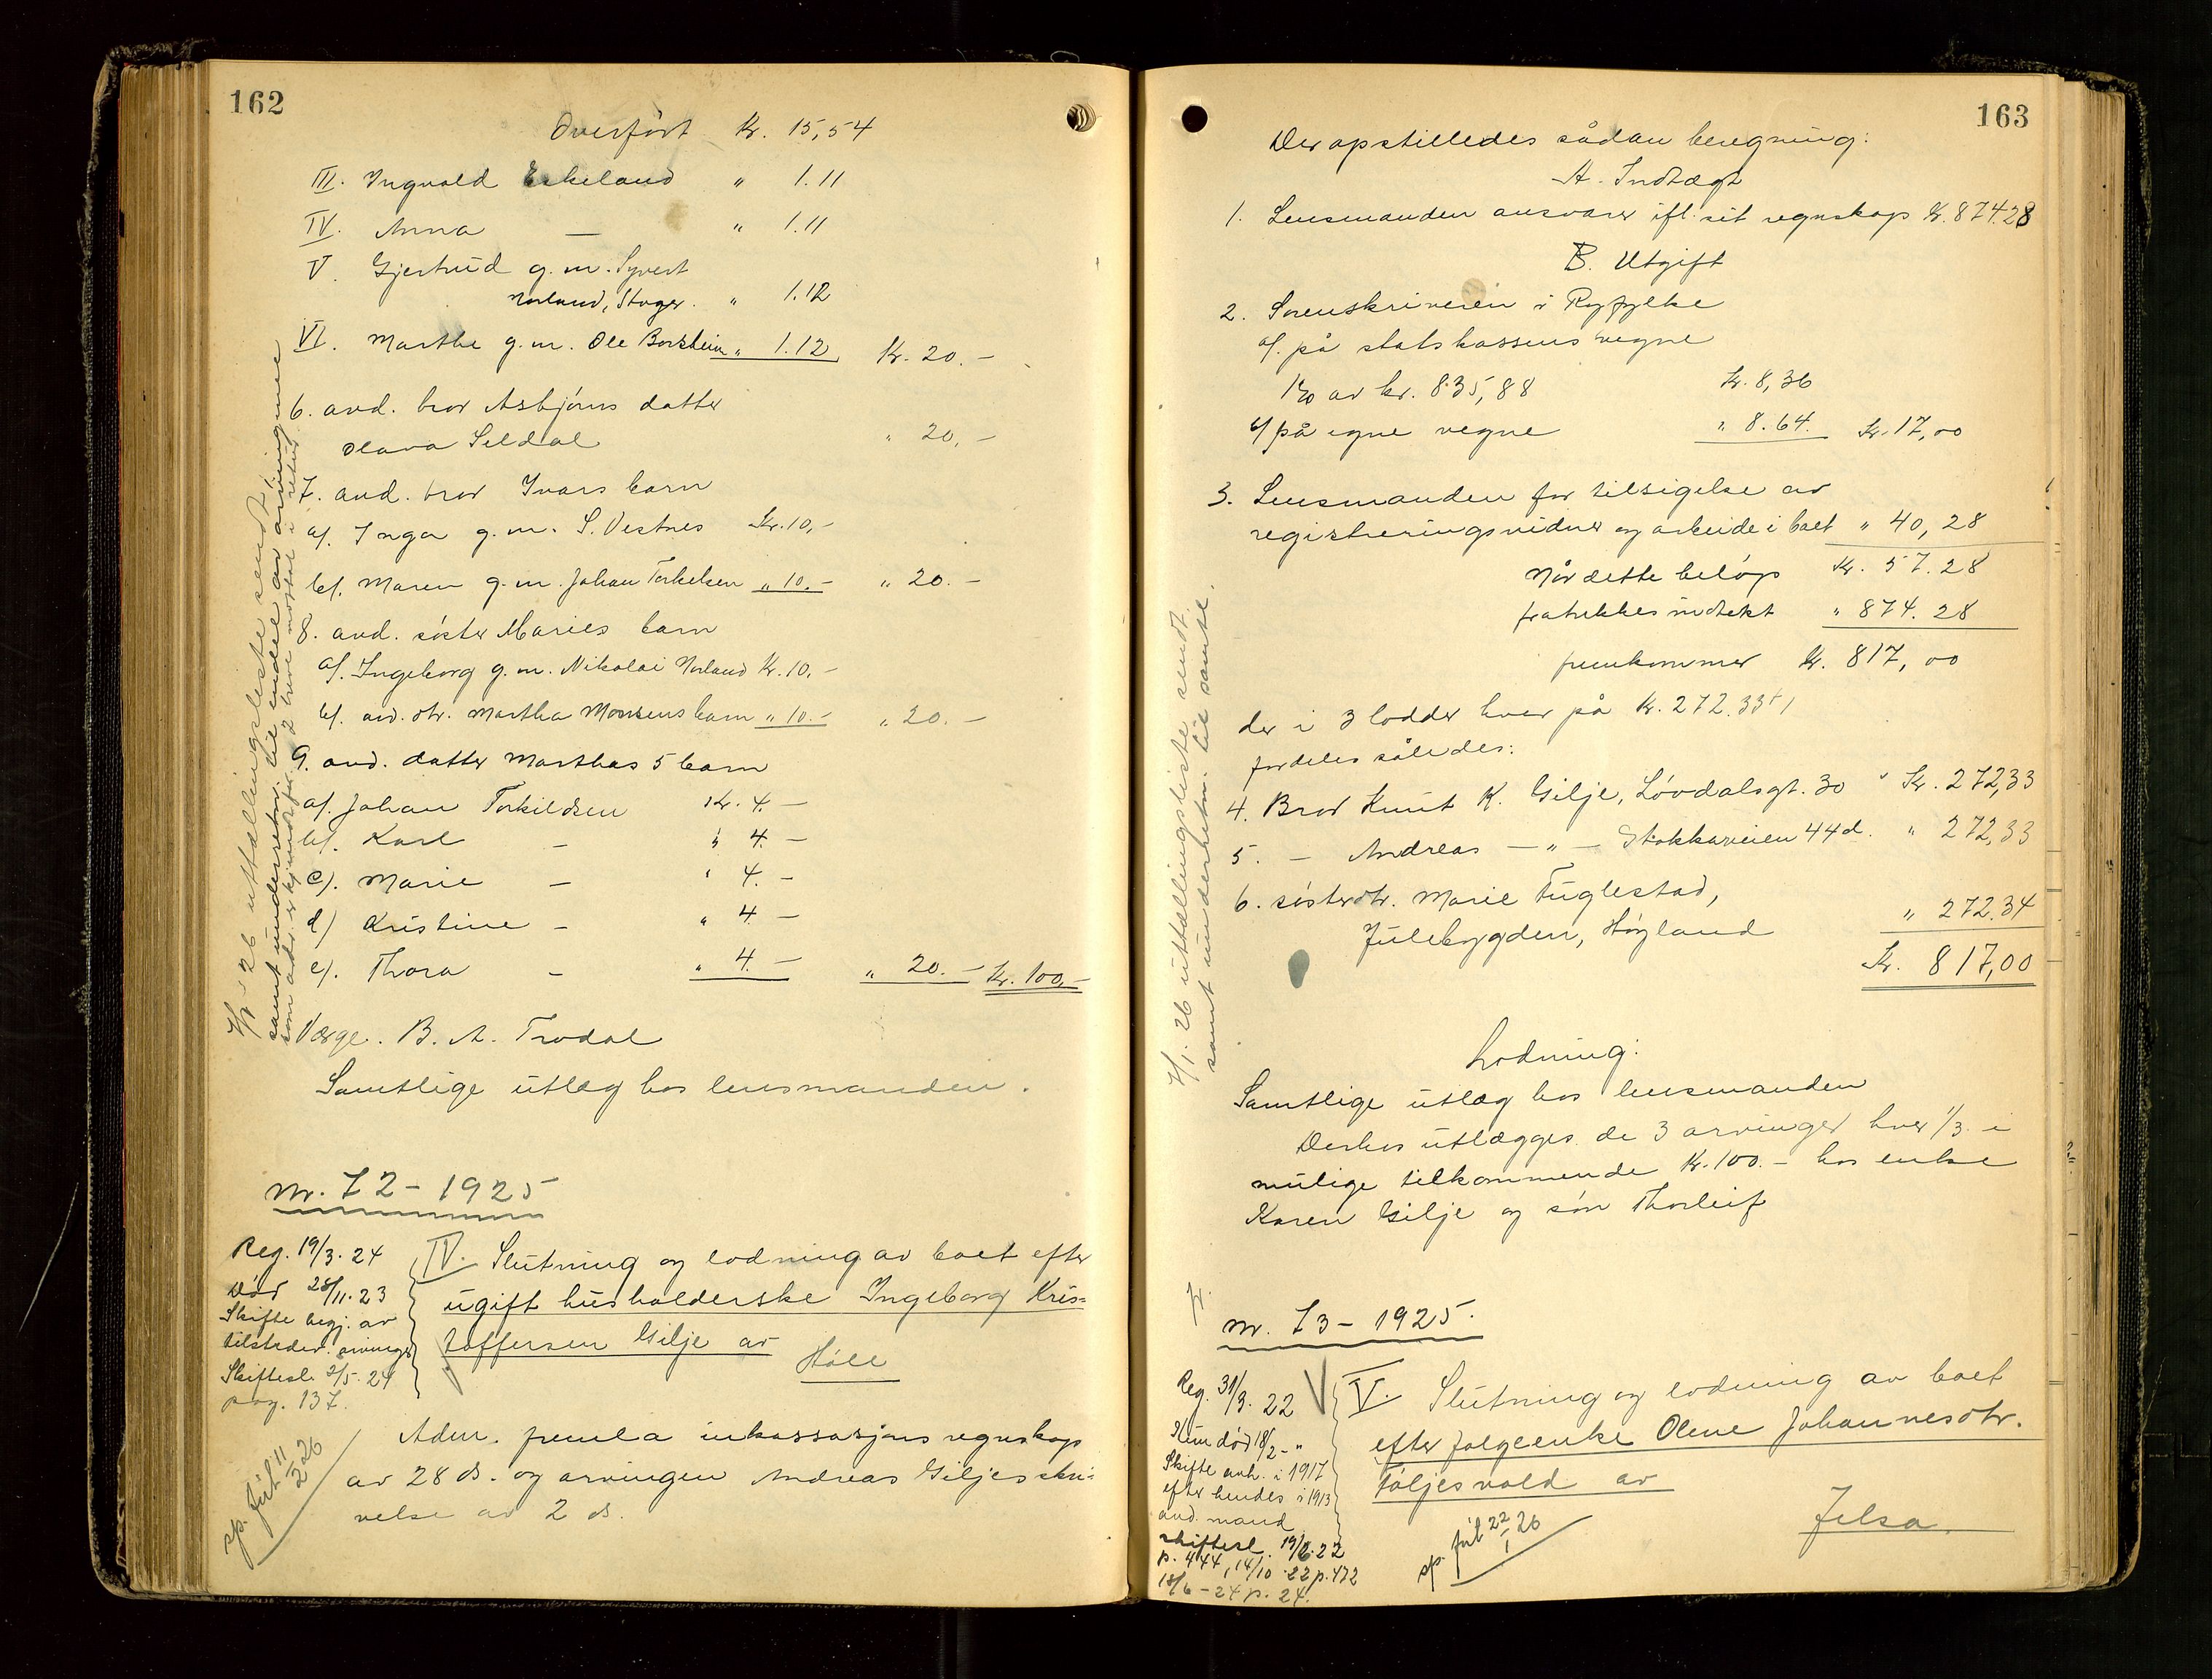 162
Overført Kr. 15,54
III. Ingvald Eskeland " 1.11
IV. Anna — " 1.11
V. Gjertrud g.m. Syvert
Norland, Stvgr. " 1.12
VI. Marthe g.m. Ole Borsheim " 1.12 Kr. 20.-
6. avd. bror Asbjørns datter
Olava Seldal " 20,-
7. avd. bror Ivars barn
a/. Inga g.m. S. Vestnes Kr. 10,-
b/. Maren g.m. Johan Torkelsen " 10.- " 20.-
8. avd. søster Maries barn
a/. Ingeborg g.m. Nikolai Norland Kr. 10.-
b/. avd. dtr. Martha Monsens barn " 10.- " 20.-
9. avd. datter Marthas 5 barn
a/. Johan Torkildsen Kr. 4.-
b/. Karl — " 4.-
c/. Marie — " 4.-
d/ Kristine — " 4.-
e/. Thora — " 4.- " 20.- Kr. 100,-
Værge. B. A. Trodal
Samtlige utlæg hos lensmanden.
26 uttællingsliste sendt
samt underretn. til endel av arvingene
nr. 72 - 1925
Reg. 19/3. 24
Død 28/11. 23
Skifte begj. av
tilstedev. arvinger
Skiftesl. 2/5. 24
pag. 137.
IV. Slutning og lodning av boet efter
ugift husholderske Ingeborg Kris=
toffersen Gilje av
Høle
Adm. fremla inkassasjons regnskap
av 28 ds. og arvingen Andreas Giljes skri=
velse av 2 ds.
sp. júl 11/2 26
163
Der opstilledes sådan beregning:
A. Indtægt
1. Lensmanden ansvarer ifl. sit regnskap Kr. 874.28
B. Utgift
2. Sorenskriveren i Ryfylke
a/. på statskassens vegne
1% av kr. 835,88 Kr. 8,36
b/ på egne vegne " 8.64. Kr. 17,00
3. Lensmanden for tilsigelse av
registreringsvidner og arbeide i boet " 40,28
Når dette beløp Kr. 57.28
fratrekkes indtekt " 874.28
fremkommer Kr. 817,00
der i 3 lodder hver på Kr. 272.33 1/
fordeles således:
4. Bror Knut K. Gilje, Løvdalsgt. 30 Kr. 272,33
5. - Andreas — " — Stokkaveien 44d. " 272,33
6. søsterdtr. Marie Fuglestad,
Julebygden, Høyland " 272.34
Kr. 817,00
1. 26 uttællingsliste sendt
samt underretn. til samtl.
Lodning:
Samtlige utlæg hos lensmanden
Derhos utlægges de 3 arvinger hver 1/3 i
mulige tilkommende Kr. 100.- hos enke
Karen Gilje og søn Thorleif
nr. 73 - 1925.
Reg. 31/3. 22
Hun død 18/2 - "
Skifte anh. i 1917
efter hendes i 1913
avd. mand
skiftesl. 19/6. 22
p. 444, 14/10 22 p. 472
18/6 - 24 p. 24.
V. Slutning og lodning av boet
efter folgeenke Olene Johannesdtr.
Føljesvold av
Jelsa.
sp. júl 22/1 26